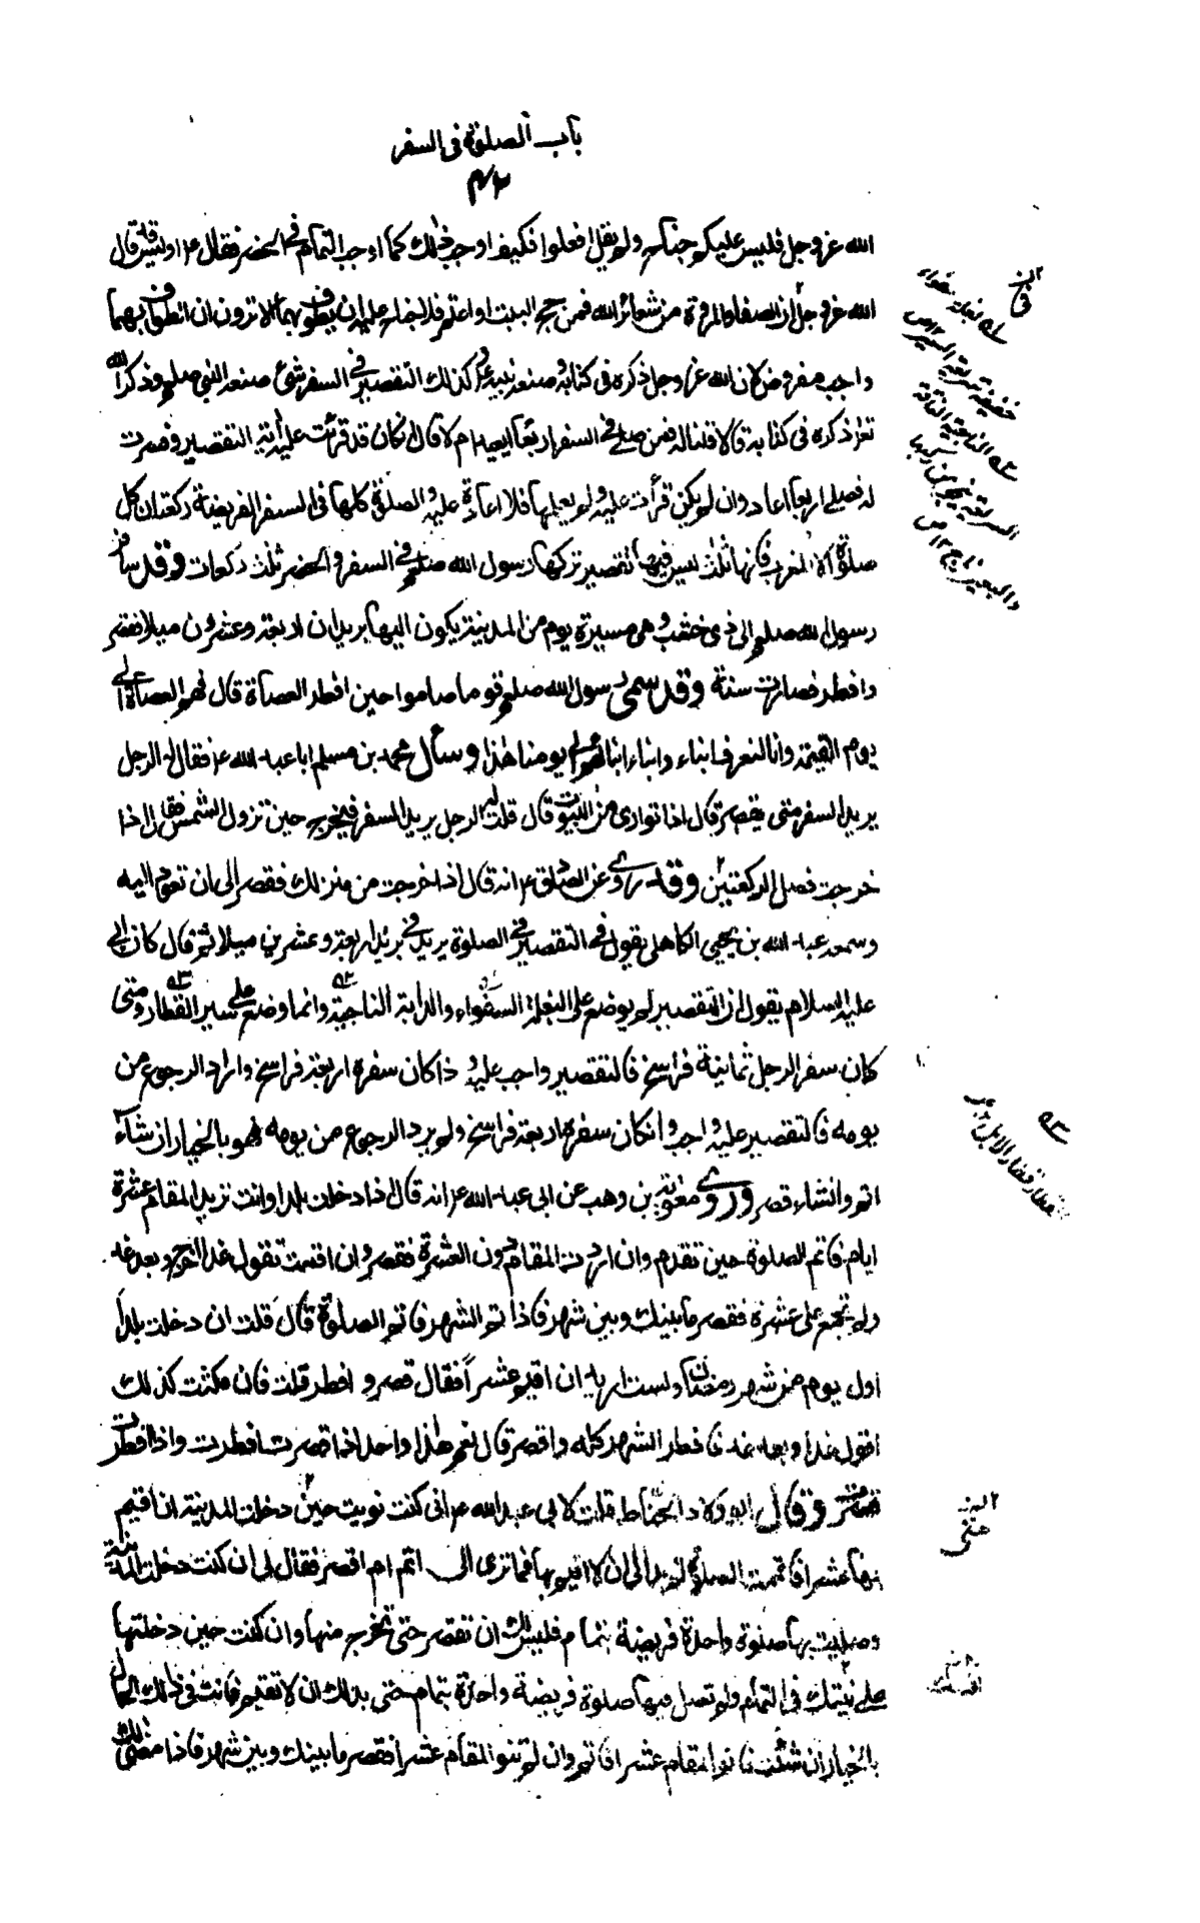 باب الصلوة فى السفر
الله عز وجل فليس عليكم جناح ولم يقل افعلوا فكيف اوجب ذلك كما اوجب التمام فى الحضر فقال ع اوليس قد قال
الله عز وجل ان الصفا والمروة من شعائر الله فمن حج البيت او اعتمر فلا جناح عليه ان يطوف بهما الا ترون ان الطواف بهما
واجب مفروض لان الله عز وجل ذكره فى كتابه وصنعه نبيه ع وكذلك التقصير فى السفر شئ صنعه النبى صلعم وذكر الله
تعالى ذكره فى كتابه قالا قلنا له فمن صلى فى السفر اربعا ايعيد ام لا قال ان كان قد قرئت عليه اية التقصير وفسرت
له فصلى اربعا اعاد وان لم يكن قرأت عليه ولم يعلمها فلا اعادة عليه والصلوة كلها فى السفر الفريضة ركعتان كل
صلوة الا المغرب فانها ثلث ليس فيها تقصير تركها رسول الله صلعم فى السفر والحضر ثلث ركعات وقد سافر
رسول الله صلعم الى ذى خشب وهى مسيرة يوم من المدينة يكون اليها بريدان اربعة وعشرون ميلا فقصر
وافطر فصارت سنة وقد سمى رسول الله صلعم قوما صاموا حين افطر العصاة قال فهم العصاة الى
يوم القيمة وانا لنعرف ابناءهم وابناء ابنائهم الى يومنا هذا وسأل محمد بن مسلم ابا عبد الله ع فقال له الرجل
يريد السفر متى يقصر قال اذا توارى من البيوت قال قلت له الرجل يريد السفر فيخرج حين تزول الشمس فقال اذا
خرجت فصل الركعتين وقد روى عن الصادق ع انه قال اذا خرجت من منزلك فقصر الى ان تعود اليه
وسمعه عبد الله بن يحيى الكاهلى يقول فى التقصير فى الصلوة بريد فى بريد اربعة وعشرين ميلا ثم قال كان ابى
عليه السلام يقول ان التقصير لم يوضع على البغلة السفواء والدابة الناجية وانما وضع على سير القطار ومتى
كان سفر الرجل ثمانية فراسخ فالتقصير واجب عليه واذا كان سفره اربعة فراسخ واراد الرجوع من
يومه فالتقصير عليه واجب وان كان سفره اربعة فراسخ ولم يرد الرجوع من يومه فهو بالخيار ان شاء
اتم وان شاء قصر وروى معوية بن وهب عن ابى عبد الله ع انه قال اذا دخلت بلدا وانت تريد المقام عشرة
ايام فاتم الصلوة حين تقدم وان اردت المقام دون العشرة فقصر وان اقمت تقول غدا اخرج وبعد غد
ولم تجمع على عشرة فقصر ما بينك وبين شهر فاذا تم الشهر فاتم الصلوة قال قلت ان دخلت بلدا
اول يوم من شهر رمضان ولست اريد ان اقيم عشرا فقال قصر وافطر قلت فان مكثت كذلك
اقول غدا وبعد غد فافطر الشهر كله واقصر قال نعم هذا واحد اذا قصرت افطرت واذا افطرت
قصرت وقال ابو ولاد الحناط قلت لابى عبد الله ع انى كنت نويت حين دخلت المدينة ان اقيم
بها عشرا فاتممت الصلوة ثم بدا لى ان لا اقيم بها فما ترى لى اتم ام اقصر فقال لى ان كنت دخلت المدينة
وصليت بها صلوة واحدة فريضة بتمام فليس لك ان تقصر حتى تخرج منها وان كنت حين دخلتها
على نيتك فى التمام ولم تصل فيها صلوة فريضة واحدة بتمام حتى بدا لك ان لا تقيم فانت فى ذلك الحال
بالخيار ان شئت فانو المقام عشرا فاتم وان لم تنو المقام عشرا فقصر ما بينك وبين شهر فاذا مضى لك